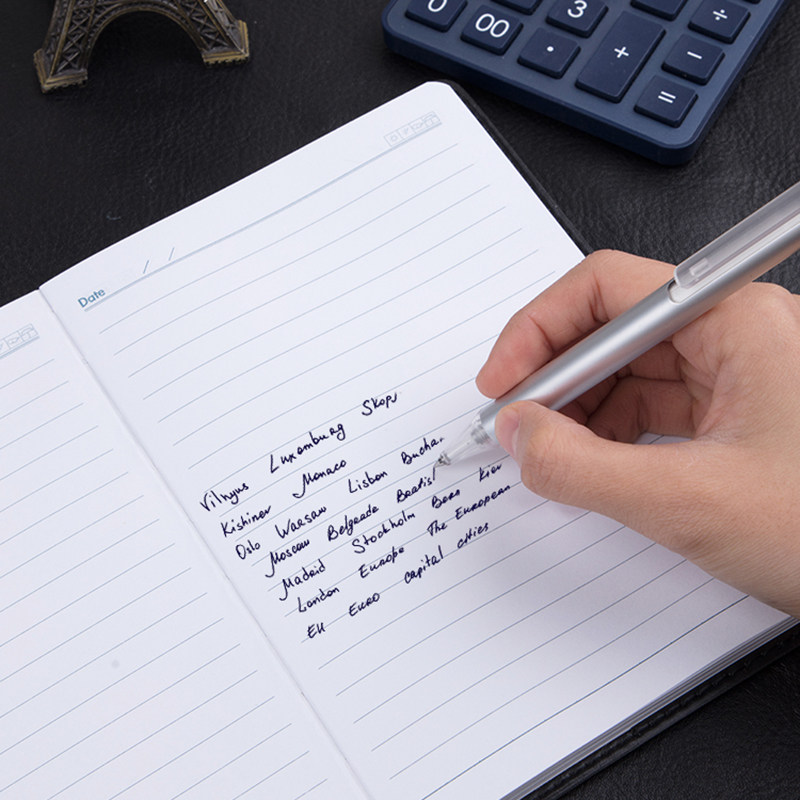 0 00 3 ÷
. + −
=
Date / /
Vilnyus Luxemburg Skopi
Kishinev Monaco
Oslo Warsaw Lisbon Buchar
Moscow Belgrade Bratisl
Madrid Stockholm Bern Kiev
London Europe The European
EU Euro capital cities